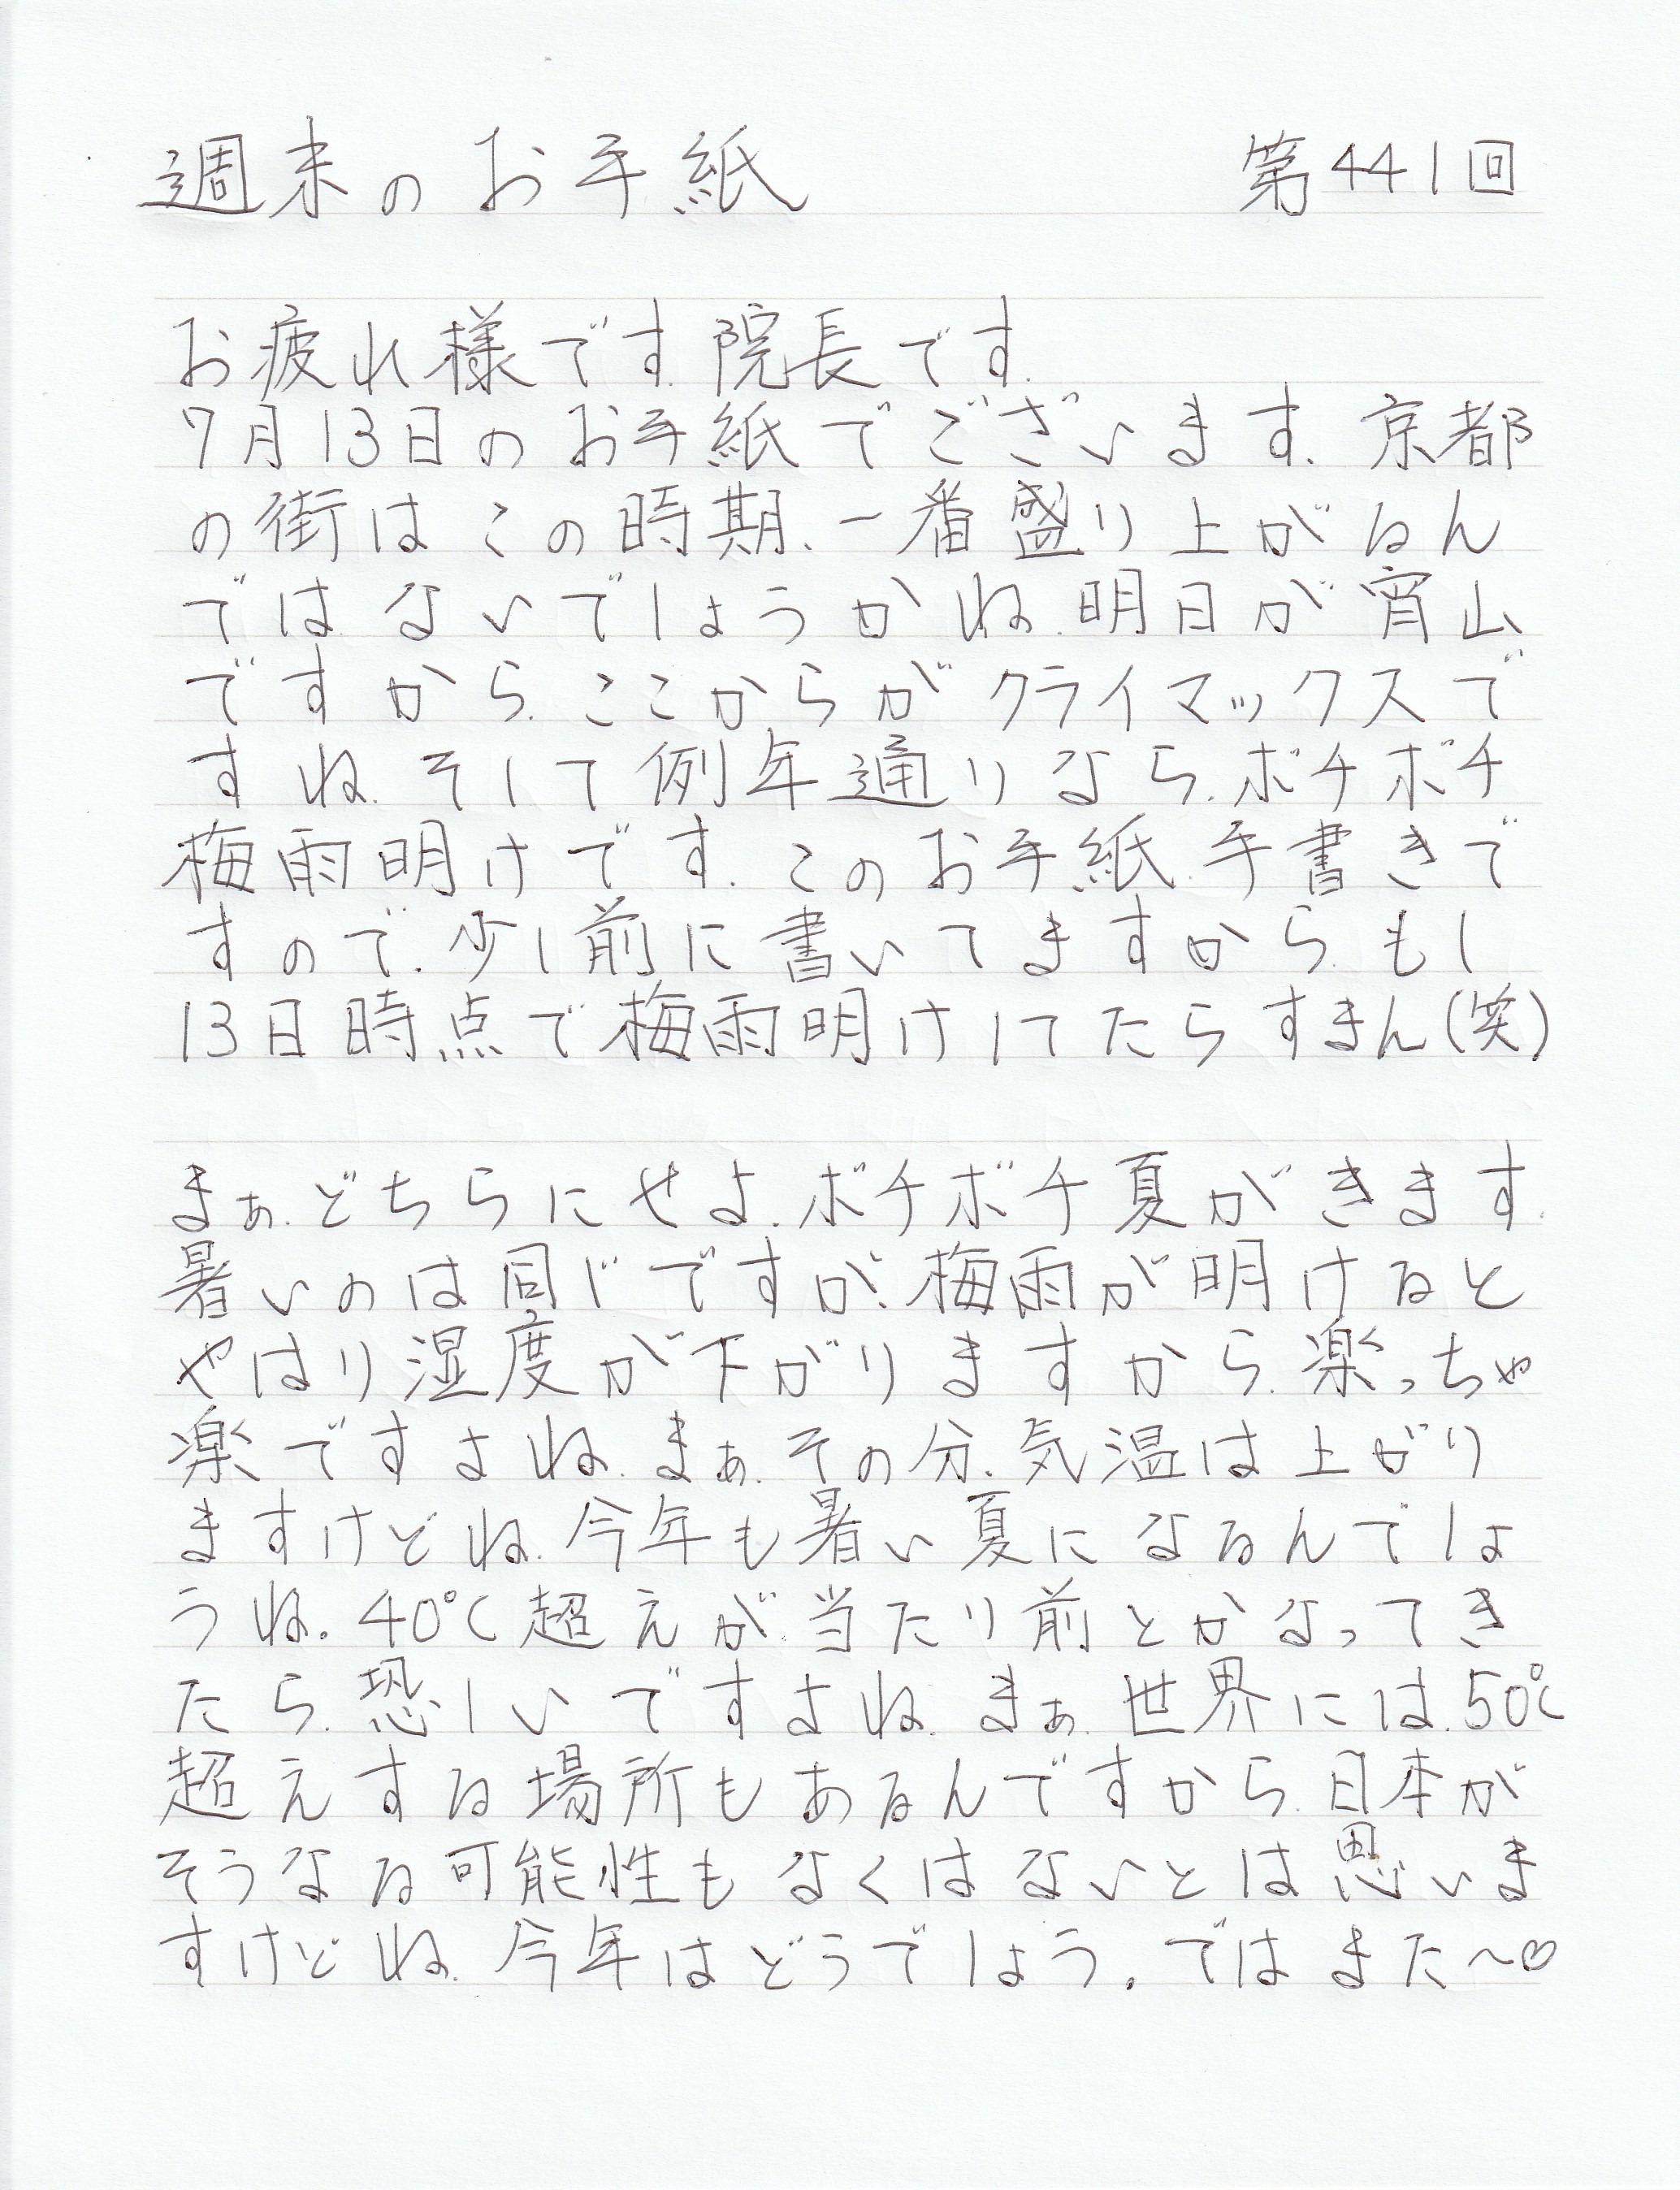 週末のお手紙 第441回
お疲れ様です.院長です.
7月13日のお手紙でございます.京都
の街はこの時期、一番盛り上がるん
ではないでしょうかね.明日が宵山
ですから.ここからがクライマックスで
すね.そして例年通りなら.ボチボチ
梅雨明けです.このお手紙.手書きで
すので.少し前に書いてますから.もし
13日時点で梅雨明けしてたらすまん(笑)
まぁ.どちらにせよ.ボチボチ夏がきます.
暑いのは同じですが、梅雨が明けると
やはり湿度が下がりますから.楽っちゃ
楽ですよね.まぁ.その分、気温は上がり
ますけどね.今年も暑い夏になるんでしょ
うね.40℃超えが当たり前とかなってき
たら.恐しいですよね.まぁ.世界には.50℃
超えする場所もあるんですから.日本が
そうなる可能性もなくはないとは思いま
すけどね.今年はどうでしょう.ではまた〜♡